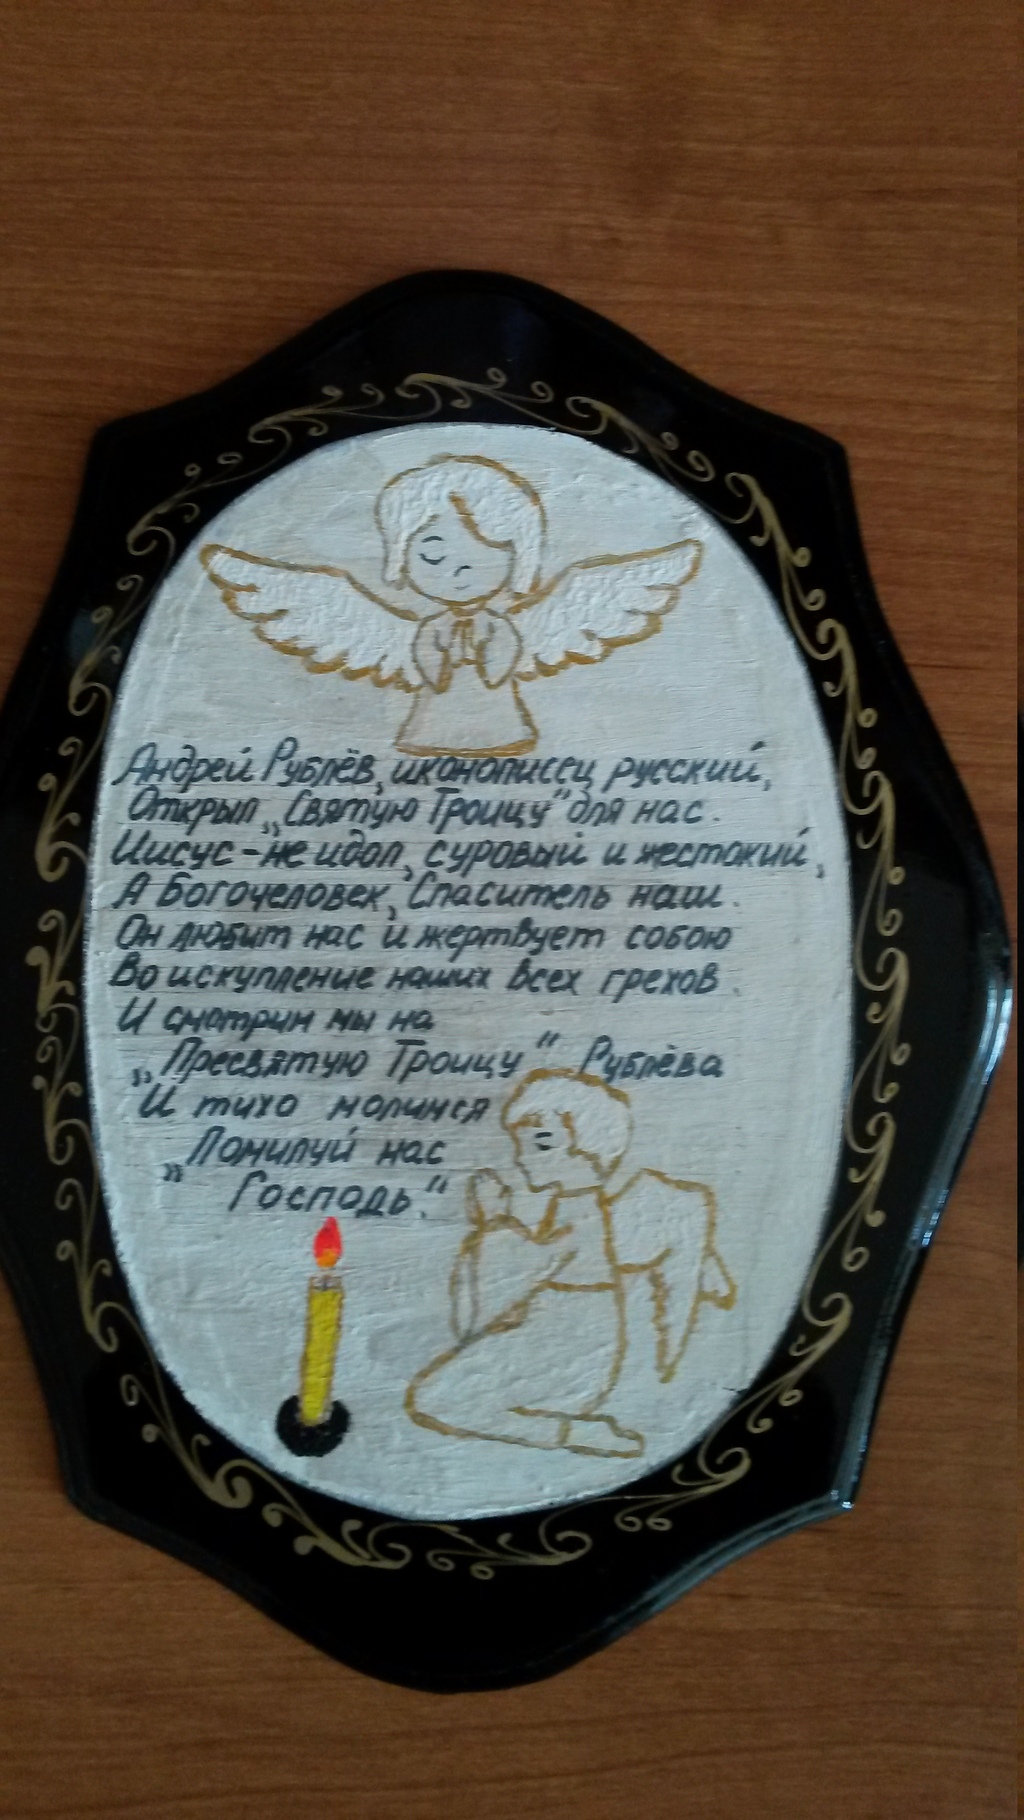 Андрей Рублёв, иконописец русский,
Открыл „Святую Троицу" для нас.
Иисус - не идол, суровый и жестокий,
А Богочеловек, Спаситель наш.
Он любит нас и жертвует собою
Во искупление наших всех грехов.
И смотрим мы на
„Пресвятую Троицу" Рублёва
И тихо молимся
„Помилуй нас
Господь."